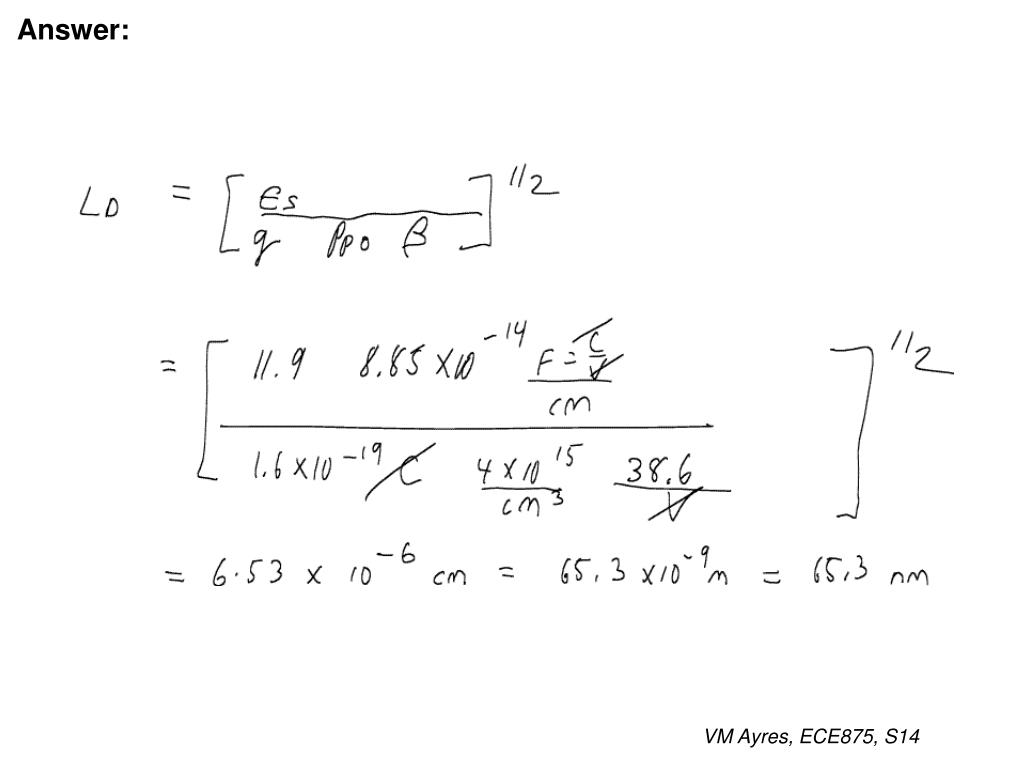 Answer:
L_D = [ ε_s / (q p_po β) ]^1/2
= [ (11.9 8.85 x 10^-14 (F = C/V)/cm) / (1.6 x 10^-19 C (4 x 10^15)/cm^3 38.6/V) ]^1/2
= 6.53 x 10^-6 cm = 65.3 x 10^-9 m = 65.3 nm
VM Ayres, ECE875, S14